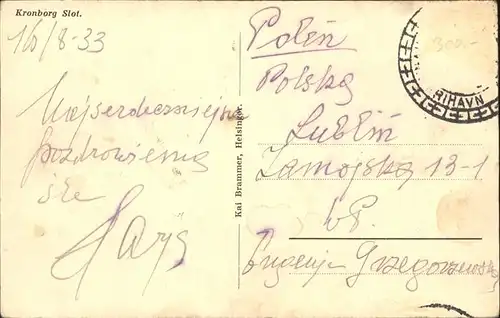 Kronborg Slot.
16/8-33
Najserdeczniejsze
pozdrowienia
śle
Polen
Polska
Lublin
Zamojska 13-1
Eugenja Grzegorzewska
Kai Brammer, Helsingør.
300.-
RIHAVN